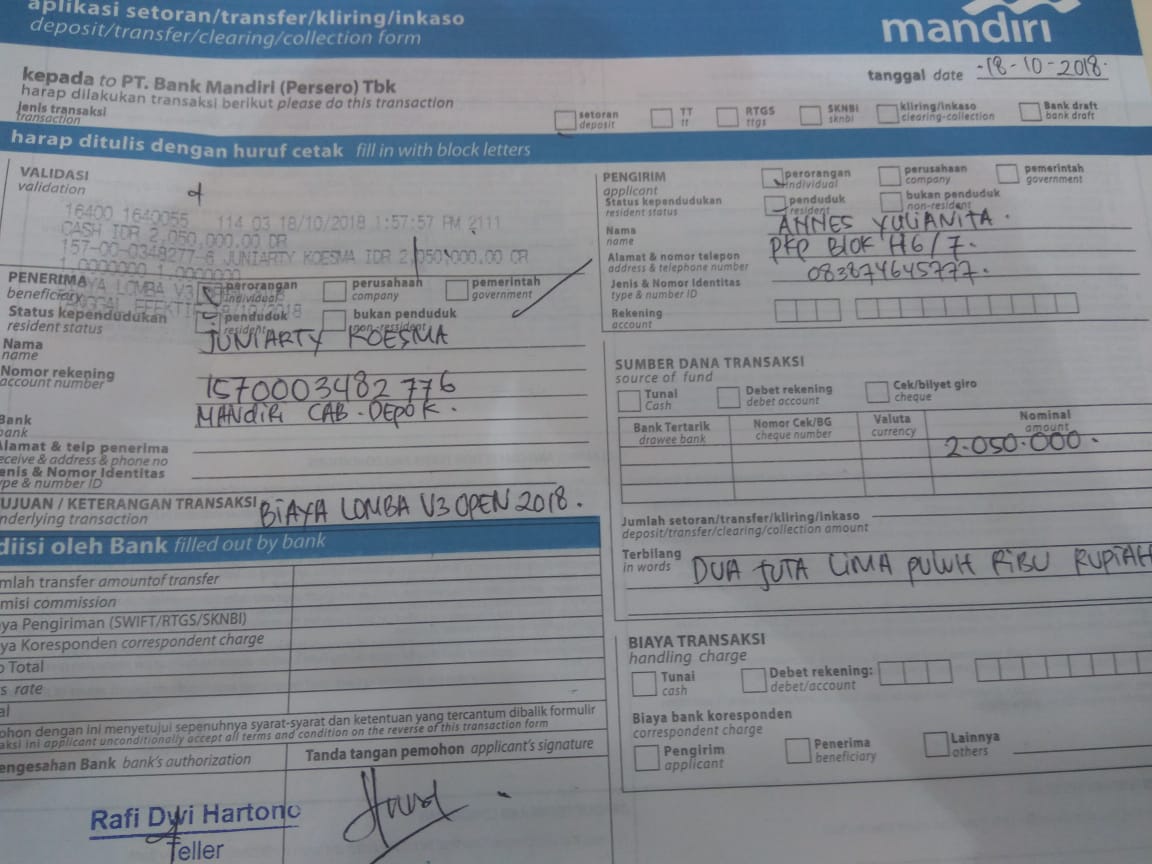 aplikasi setoran/transfer/kliring/inkaso
deposit/transfer/clearing/collection form
mandiri
kepada to PT. Bank Mandiri (Persero) Tbk
harap dilakukan transaksi berikut please do this transaction
tanggal date 18-10-2018
Jenis transaksi
transaction
setoran
deposit
TT
tt
RTGS
rtgs
SKNBI
sknbi
kliring/inkaso
clearing-collection
Bank draft
bank draft
harap ditulis dengan huruf cetak fill in with block letters
VALIDASI
validation
16400 1640055 114 03 18/10/2018 1:57:57 PM 2111
CASH IDR 2,050,000.00 DR
157-00-0348277-6 JUNIARTY KOESMA IDR 2,050,000.00 CR
1.0000000 1.0000000
LOMBA V3
PENERIMA
beneficiary
perorangan
individual
perusahaan
company
pemerintah
government
Status kependudukan
resident status
penduduk
resident
bukan penduduk
non-resident
Nama
name
JUNIARTY KOESMA
Nomor rekening
account number
1570003482776
Bank
bank
MANDIRI CAB. DEPOK.
Alamat & telp penerima
receive & address & phone no
Jenis & Nomor Identitas
type & number ID
TUJUAN / KETERANGAN TRANSAKSI
underlying transaction
BIAYA LOMBA V3 OPEN 2018.
diisi oleh Bank filled out by bank
mlah transfer amountof transfer
misi commission
ya Pengiriman (SWIFT/RTGS/SKNBI)
ya Koresponden correspondent charge
Total
s rate
al
ohon dengan ini menyetujui sepenuhnya syarat-syarat dan ketentuan yang tercantum dibalik formulir
aksi ini applicant unconditionally accept all terms and condition on the reverse of this transaction form
engesahan Bank bank's authorization
Tanda tangan pemohon applicant's signature
Rafi Dwi Hartono
Teller
PENGIRIM
applicant
perorangan
individual
perusahaan
company
pemerintah
government
Status kependudukan
resident status
penduduk
resident
bukan penduduk
non-resident
Nama
name
ANNES YULIANITA.
Alamat & nomor telepon
address & telephone number
PKP BLOK H6/7.
083874645777.
Jenis & Nomor Identitas
type & number ID
Rekening
account
SUMBER DANA TRANSAKSI
source of fund
Tunai
Cash
Debet rekening
debet account
Cek/bilyet giro
cheque
Bank Tertarik
drawee bank
Nomor Cek/BG
cheque number
Valuta
currency
Nominal
amount
2.050.000.
Jumlah setoran/transfer/kliring/inkaso
deposit/transfer/clearing/collection amount
Terbilang
in words
DUA JUTA LIMA PULUH RIBU RUPIAH
BIAYA TRANSAKSI
handling charge
Tunai
cash
Debet rekening:
debet/account
Biaya bank koresponden
correspondent charge
Pengirim
applicant
Penerima
beneficiary
Lainnya
others